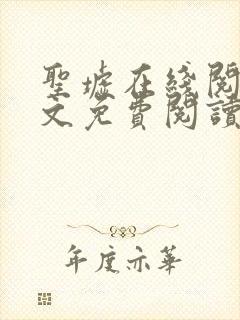 聖墟在綫閱
文免費閱讀
年度亦華